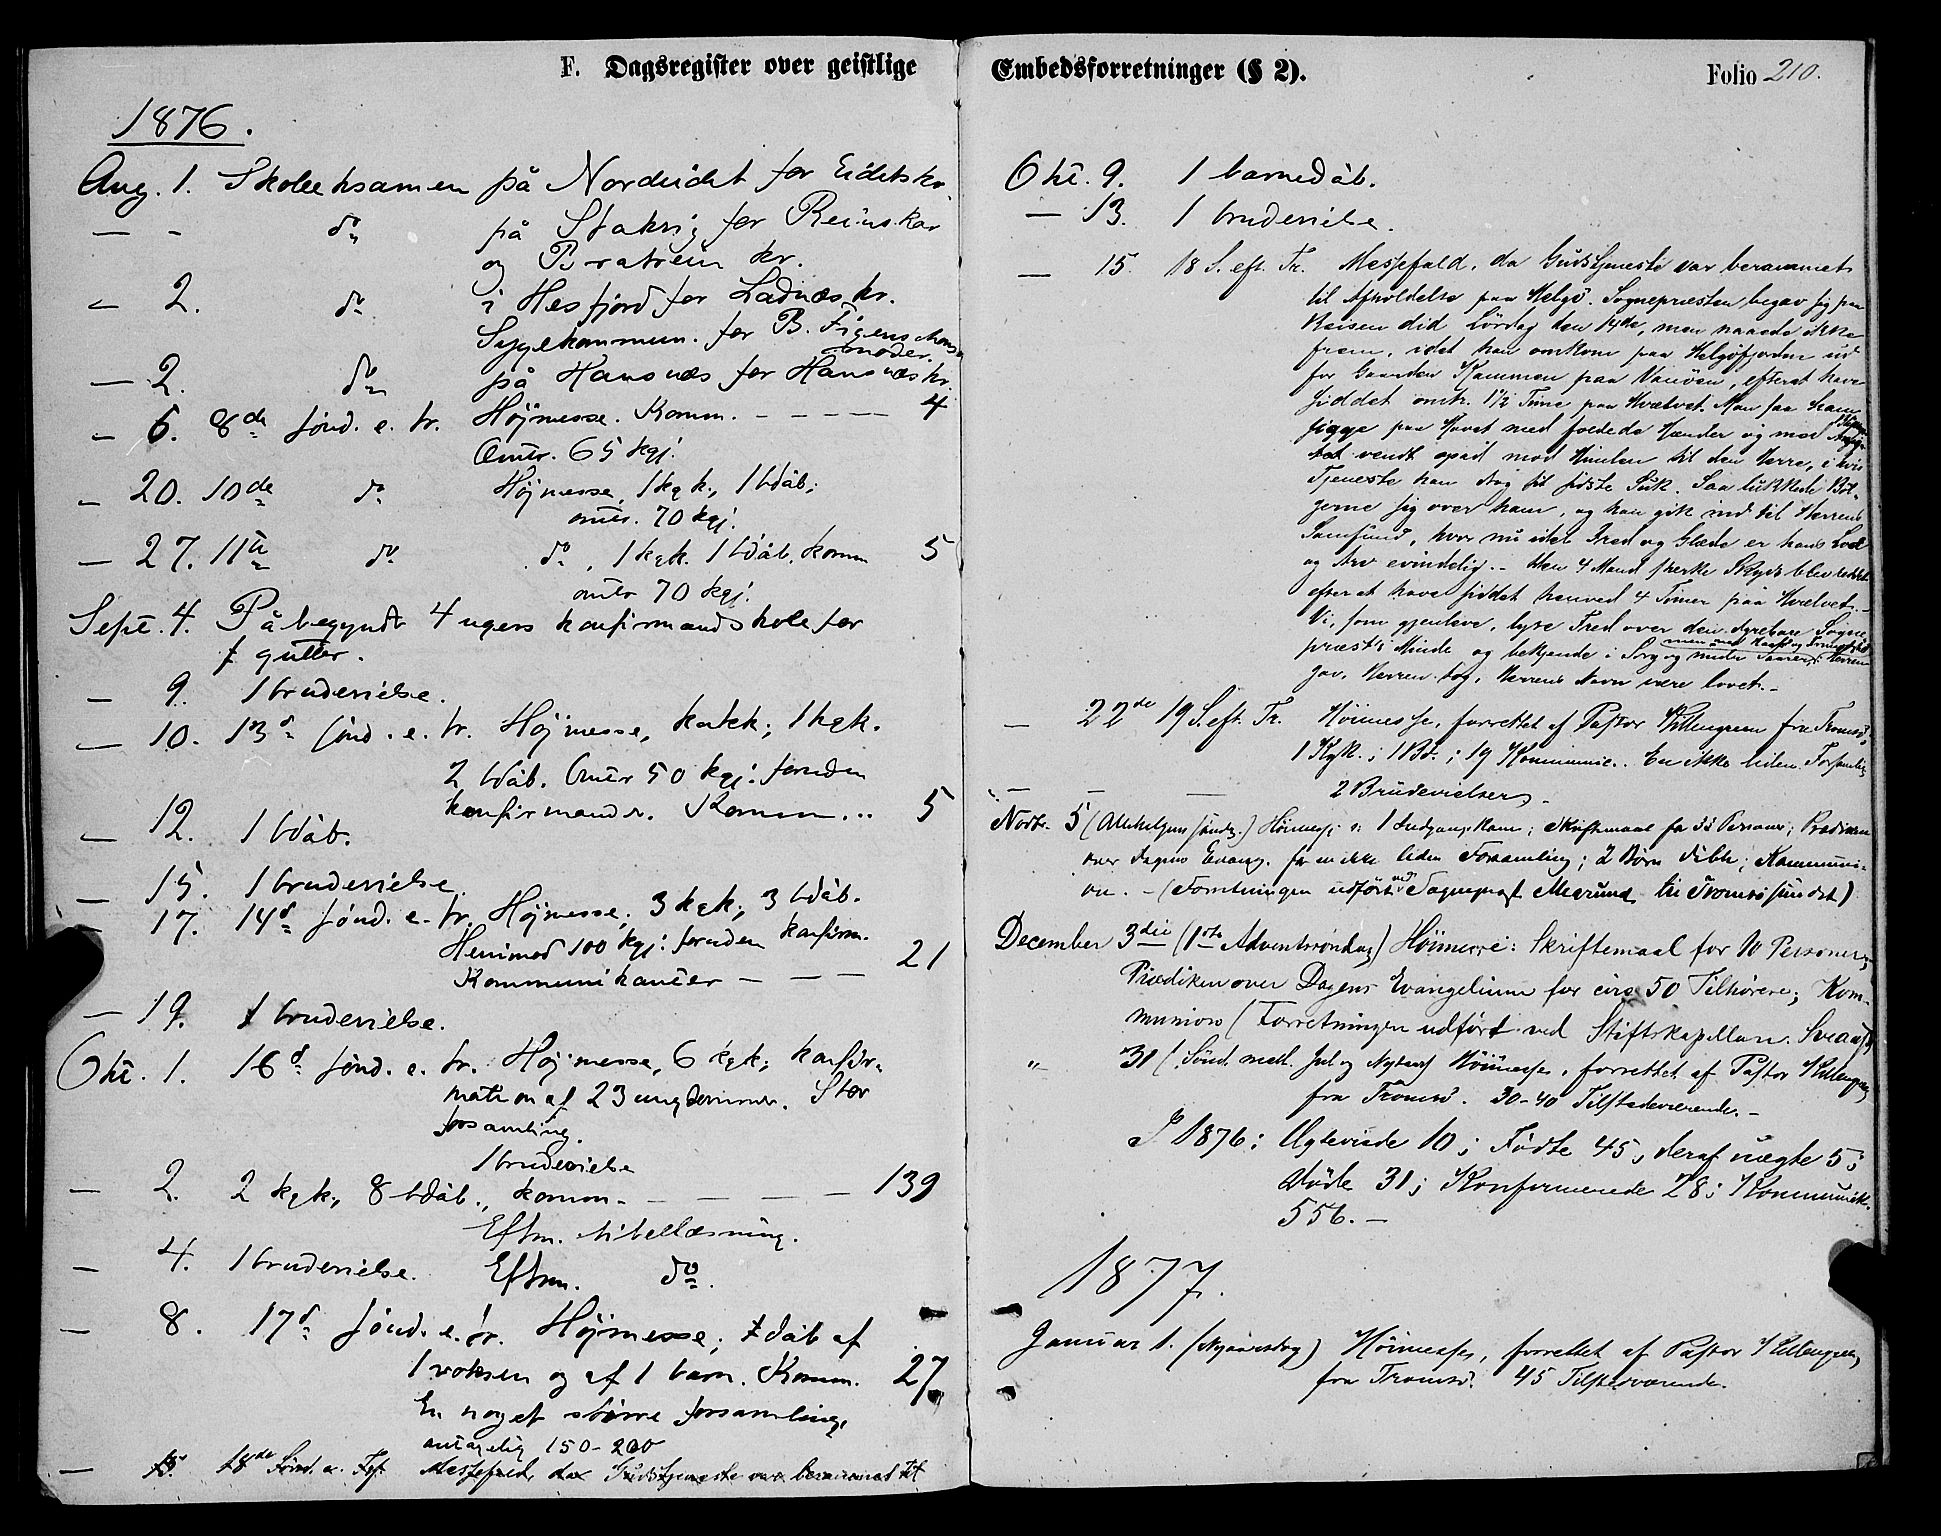 F. Dagsregister over geistlige
1876.
Aug. 1. Skoleeksamen på Nordeidet for Eidetskr.
— - do på Stakvig for Reinskar
og Bratrein kr.
— 2. do i Hesfjord for Ladnæs kr.
Sygekommun. for B. Figenschous
moder.
— 2. do på Hansnæs for Hansnæs kr.
— 6. 8de sønd. e. tr. Højmesse. Komm. - - - - 4
Omtr. 65 kgj.
— 20. 10de do Højmesse, 1 kgk., 1 bdåb;
omtr. 70 kgj.
— 27. 11te do do, 1 kgk. 1 bdåb, komm 5
omtr 70 kgj.
Sept. 4. Påbegyndt 4 ugers konfirmandskole for
7 gutter.
— 9. 1 brudevielse.
— 10. 13d sønd. e. tr. Højmesse, katek.; 1 kgk.
2 bdåb. Omtr 50 kgj. foruden
konfirmander. Komm... 5
— 12. 1 bdåb.
— 15. 1 brudevielse.
— 17. 14d sønd. e. tr. Højmesse; 3 kgk; 3 bdåb.
Henimod 100 kgj. foruden konfirm.
Kommunikanter — — — 21
— 19. 1 brudevielse.
Okt. 1. 16d sønd. e. tr. Højmesse, 6 kgk; konfir-
mation af 23 ungdommer. Stor
forsamling.
1 brudevielse
— 2. 2 kgk; 8 bdåb., komm. - — — — — 139
Eftm. bibellæsning.
— 4. 1 brudevielse. Eftm. do.
— 8. 17d sønd. e. tr. Højmesse; dåb af
1 voksen og af 1 barn. Komm. 27
En noget større forsamling,
antagelig 150-200
— 15. 18de Sønd. e. Messefald, da Gudstjeneste var berammet til
Embedsforretninger (§ 2).
Folio 210.
Okt. 9. 1 barnedåb.
— 13. 1 brudevielse.
— 15. 18 S. eft. Tr. Messefald, da Gudstjeneste var berammet
til Afholdelse paa Helgø. Sognepræsten begav sig paa
Reisen did Lördag den 14de, men naaede ikke
frem, idet han omkom paa Helgöfjorden ud
for Gaarden Kammen paa Vanöen, efterat have
siddet omtr. 1 1/2 Time paa Hvælvet. Man saa ham
ligge paa Havet med foldede Hænder og med
vendt opad mod Himlen til den Herre, i hvis
Tjeneste han drog sit sidste Suk. Saa lukkede Böl-
gerne sig over ham, og han gik ind til Herrens
Samfund, hvor nu idel Fred og Glæde er hans Lod
og Arv evindelig. - Den 4 Mand stærke Skyds blev reddet
efterat have siddet henved 4 Timer paa Hvælvet. -
Vi, som gjenleve, lyse Fred over den dyrebare Sogne-
præsts Minde og bekjende i Sorg og under Taarer,
men med Haab og : Herren
gav, Herren tog, Herrens Navn være lovet. -
— 22de 19 S. eft. Tr. Höimesse, forrettet af Pastor Killengreen fra Tromsö,
1 Kgk.; 1 Bd.; 19 Kommunic.. En ikke liden Forsamling
— — — 2 Brudevielser. -
Novbr. 5 (Allehelgens söndg.) Höimesse: 1 Indgangskone; Skriftemaal for 33 Personer; Prædiken
over Dagens Evang. for en ikke liden Forsamling; 2 Börn döbte; Kommuni-
on. - (Forretningen udfört ved Sognepræst til Tromsøsundet)
December 3die (1ste Adventssöndag) Höimesse: Skriftemaal for 10 Personer;
Prædiken over Dagens Evangelium for circa 50 Tilhörere; Kom-
munion (Forretningen udfört ved Stiftskapellan
" 31 (Sönd. mell. Jul og Nytaar) Höimesse, forrettet af Pastor Killengreen
fra Tromsö. 30-40 Tilstedeværende. -
I 1876: Ægteviede 10; Födte 45, deraf uægte 5;
Döde 31; Konfirmerede 28; Kommunik.
556. -
1877.
Januar 1. (Nyaarsdag) Höimesse, forrettet af Pastor Killengreen
fra Tromsö. 45 Tilstedeværende.